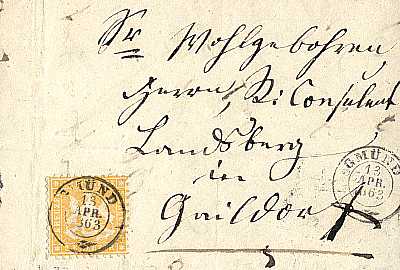 Sr Wohlgebohren
Herrn R: Consulent
Landsberg
in
Gaildorf
GMÜND
13
APR.
863
GMÜND
13
APR.
863